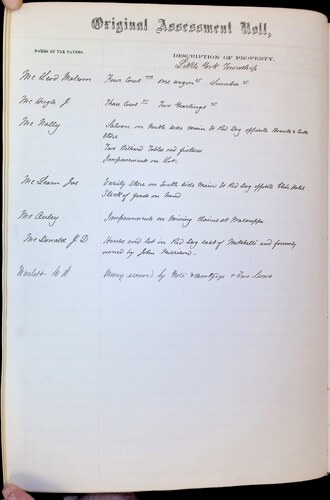 Original Assessment Roll,
NAMES OF TAX PAYERS.
DESCRIPTION OF PROPERTY.
Little York Township
Mc Leod Malcom Four Cows one wagon Lumber
Mc Hugh J Three Cows Two Yearlings
Mc Nally Saloon on North side main St Red Dog opposite
Store
Two Billiard Tables and fixtures
Improvement on Lot.
Variety Store on South side Main St Red Dog opposite Hotel
Stock of Goods on hand
Mc Auley Improvements on Mining claims at
Mc Donald J D House and lot in Red Dog east of Mitchells and formerly
owned by John Morrison.
Marlett W H Money secured by Note & Mortgage & Two Cows